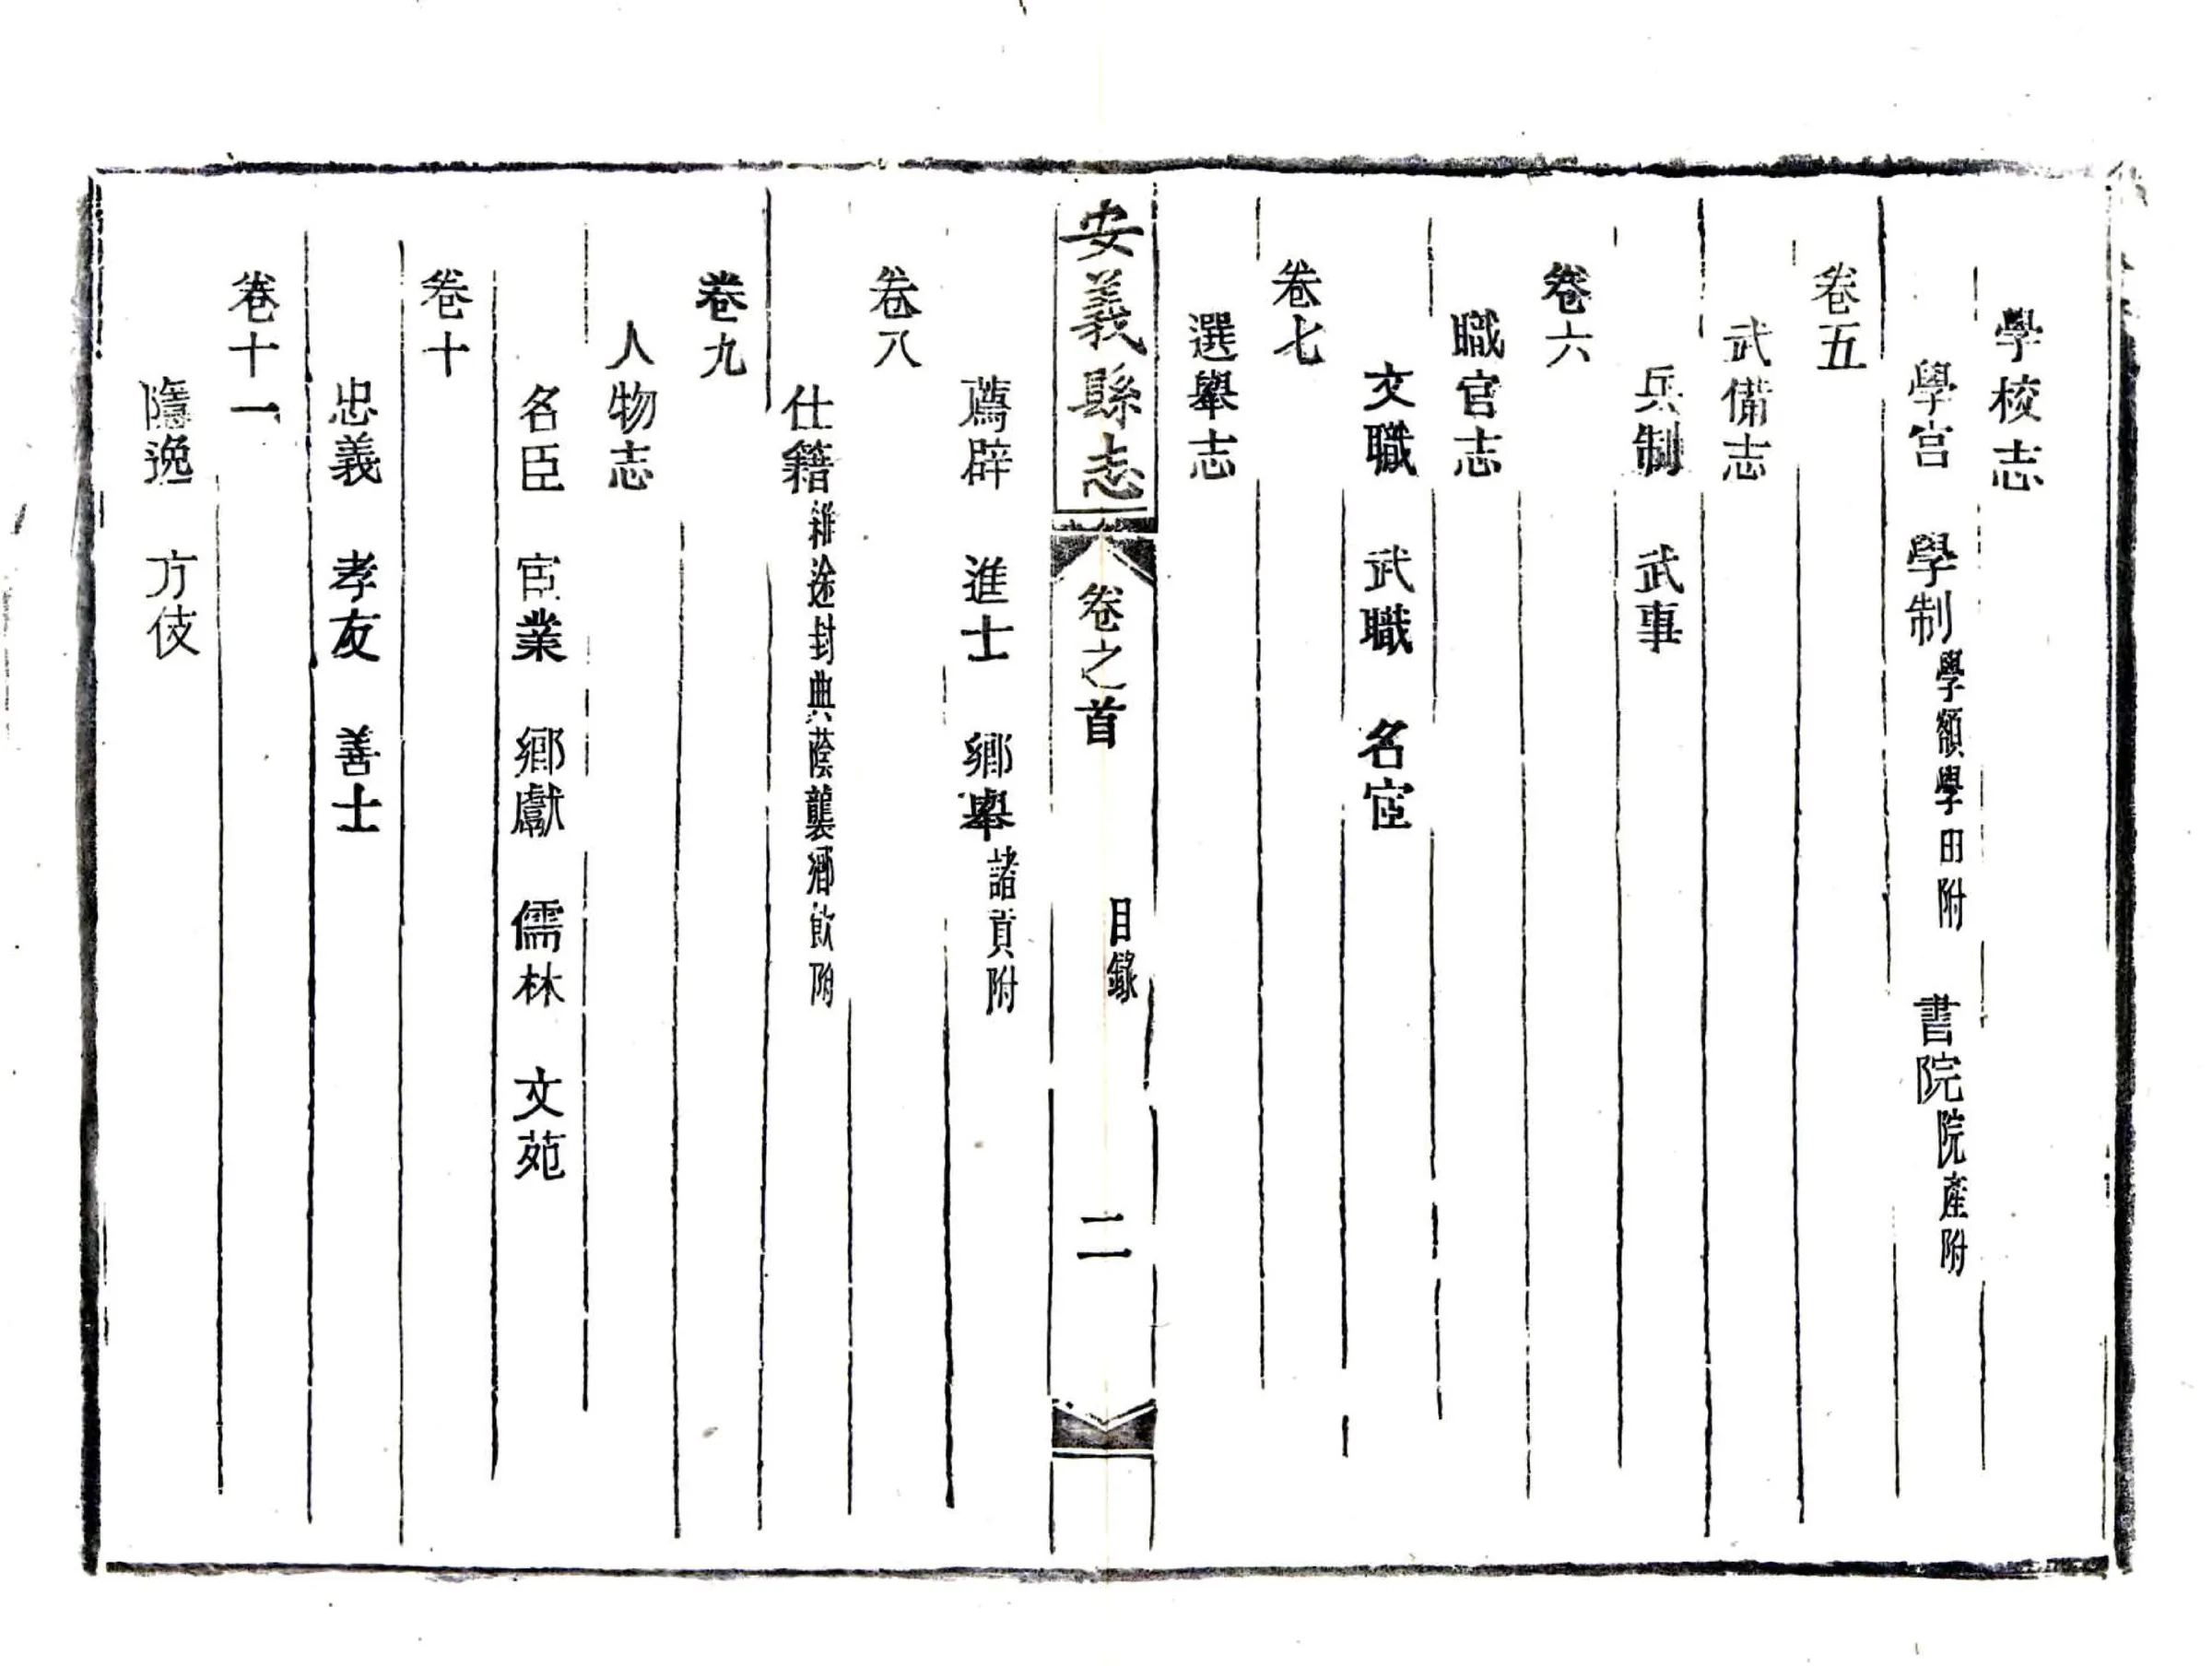 學校志
學宫　學制學額學田附　書院院產附
卷五
武備志
兵制　武事
卷六
職官志
文職　武職　名宦
卷七
選舉志
安義縣志　卷之首　目錄　二
薦辟　進士　鄉舉諸貢附
卷八
仕籍雜途封典蔭襲鄉飲附
卷九
人物志
名臣　宦業　鄉獻　儒林　文苑
卷十
忠義　孝友　善士
卷十一
隱逸　方伎